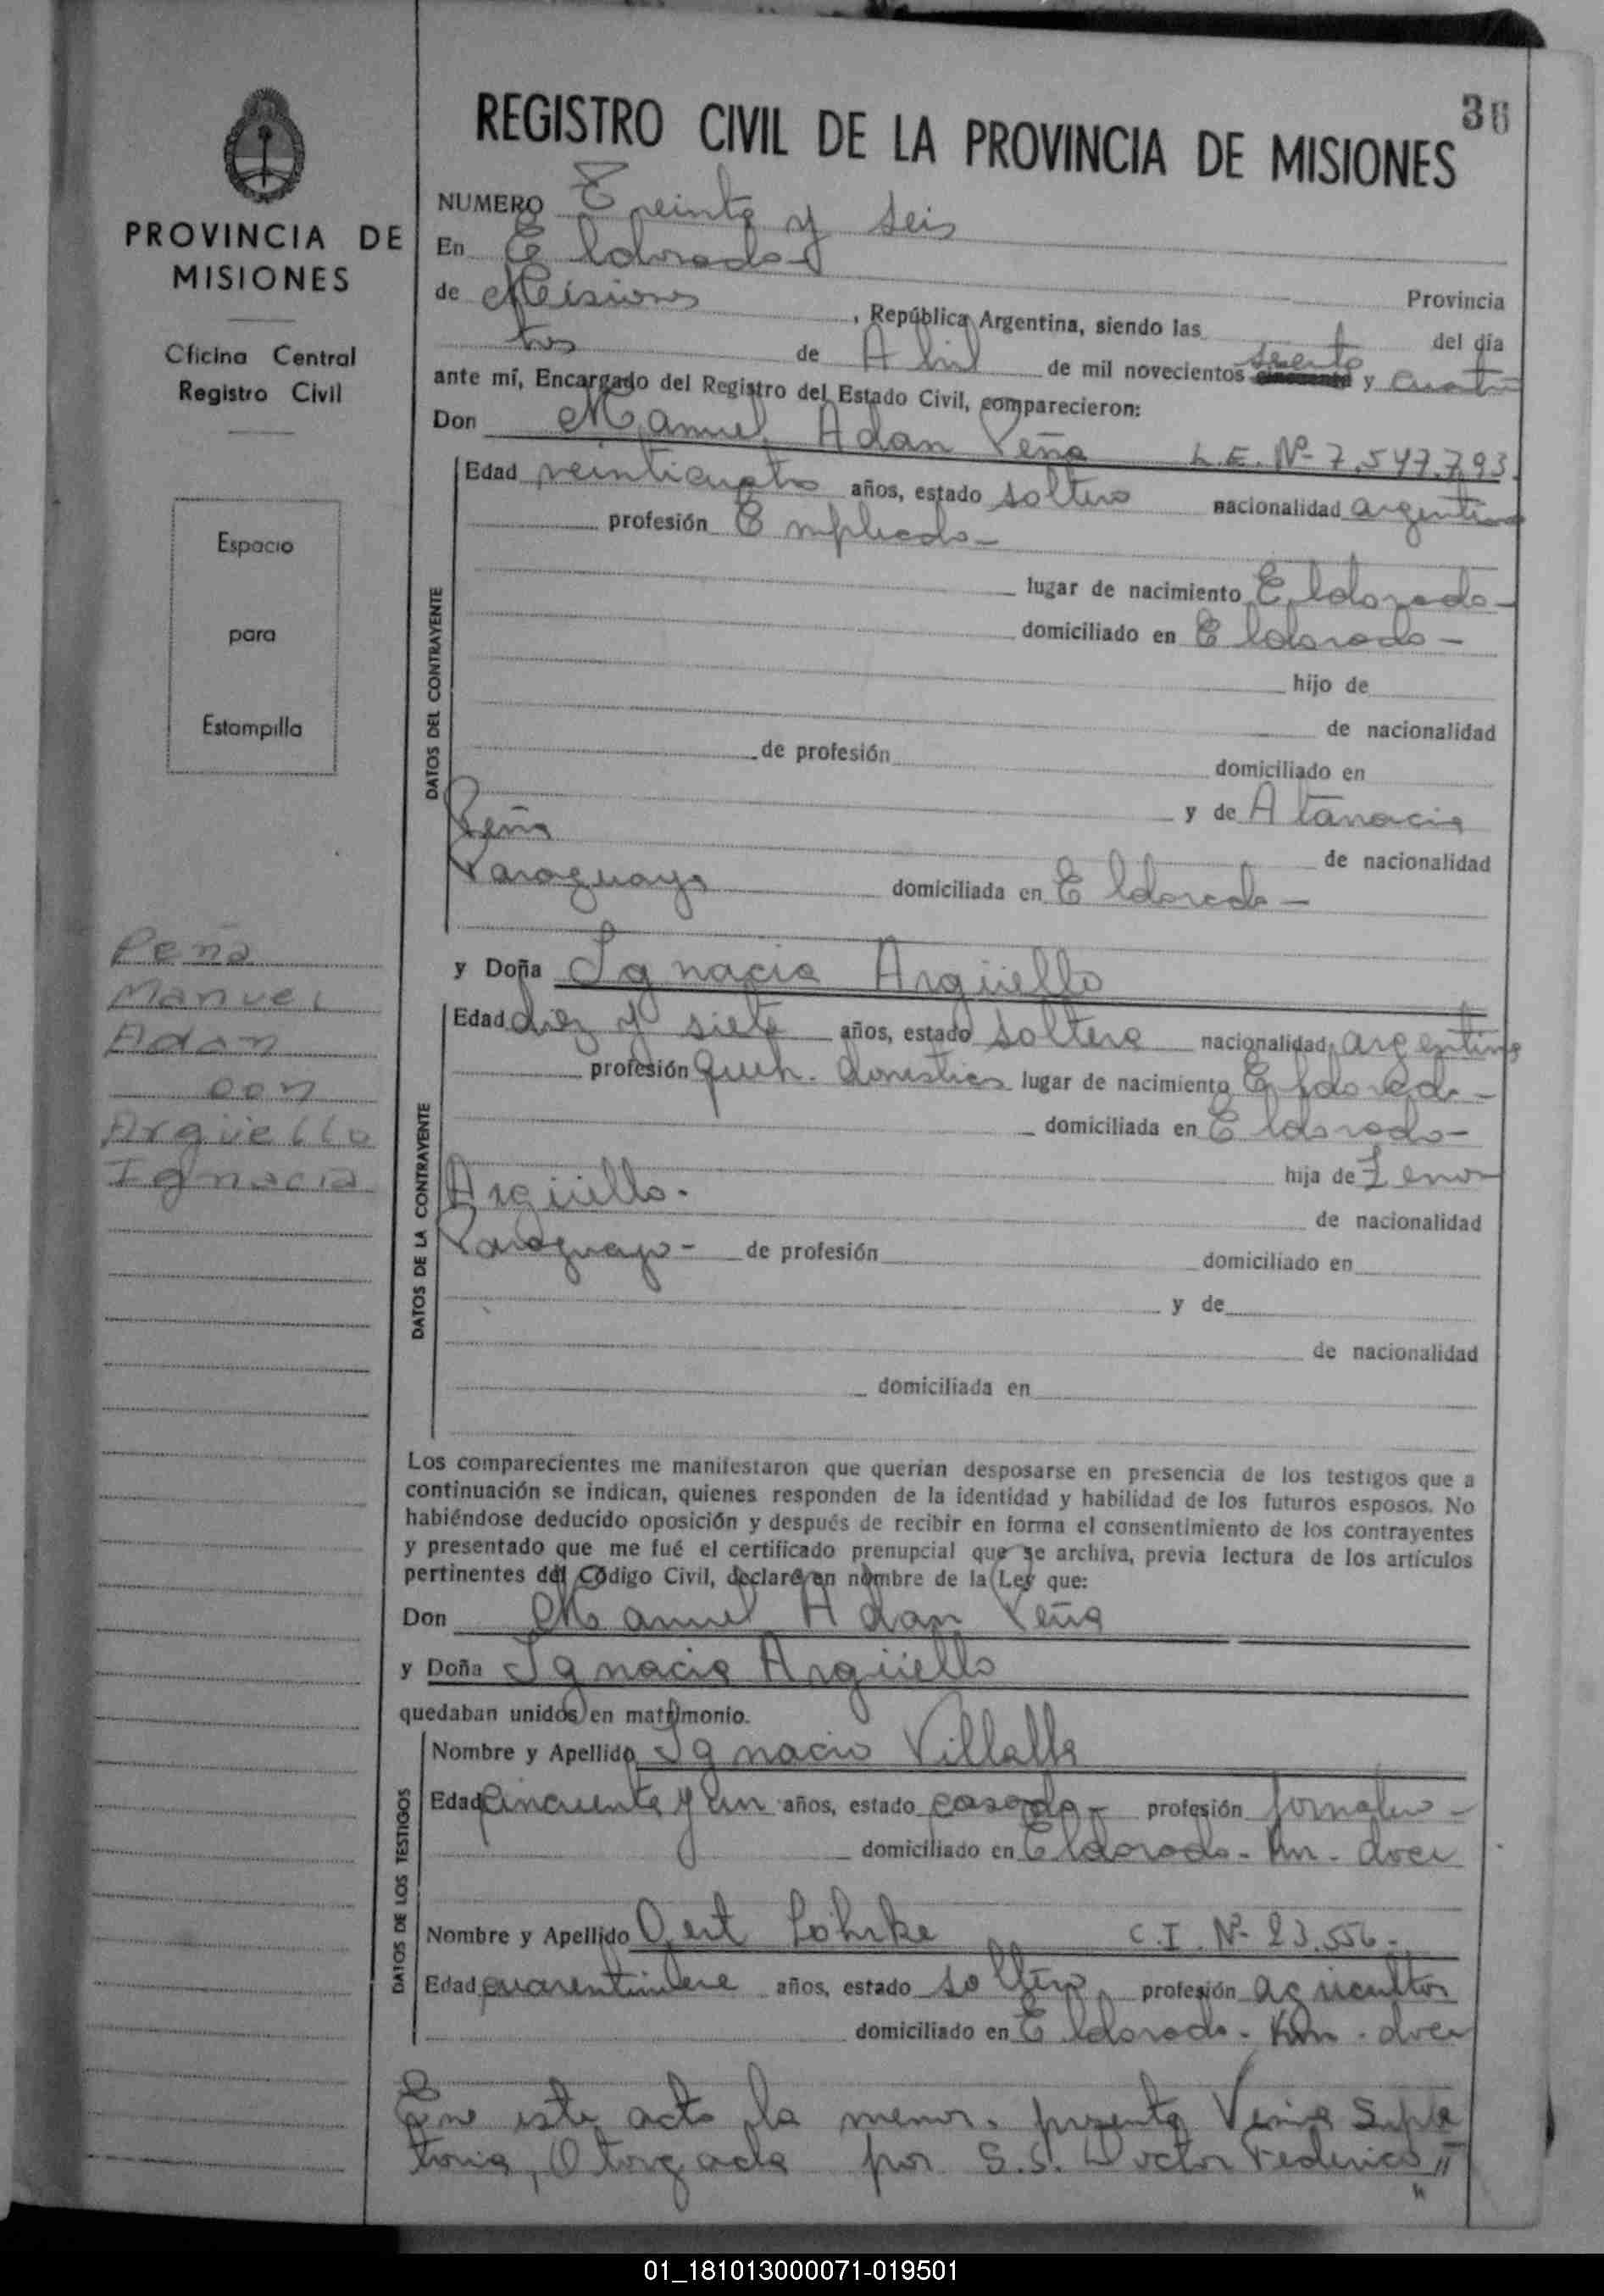 36
REGISTRO CIVIL DE LA PROVINCIA DE MISIONES
PROVINCIA DE
MISIONES
Oficina Central
Registro Civil
Espacio
para
Estampilla
Peña
Manuel
Adan
con
Argüello
Ignacia
NUMERO Treinta y seis
En Eldorado Provincia
de Misiones, República Argentina, siendo las del día
tres de Abril de mil novecientos sesenta cincuenta y cuatro
ante mí, Encargado del Registro del Estado Civil, comparecieron:
Don Manuel Adan Peña L.E. Nº 7.547.793.
DATOS DEL CONTRAYENTE
Edad veinticuatro años, estado soltero nacionalidad argentino
profesión Empleado-
lugar de nacimiento Eldorado-
domiciliado en Eldorado-
hijo de
de nacionalidad
de profesión domiciliado en
y de Atanacia
Peña de nacionalidad
Paraguaya domiciliada en Eldorado-
y Doña Ignacia Argüello
DATOS DE LA CONTRAYENTE
Edad diez y siete años, estado soltera nacionalidad argentina
profesión Queh. domesticos lugar de nacimiento Eldorado-
domiciliada en Eldorado-
hija de Zenon
Argüello.
de nacionalidad
Paraguayo- de profesión domiciliado en
y de
de nacionalidad
domiciliada en
Los comparecientes me manifestaron que querían desposarse en presencia de los testigos que a
continuación se indican, quienes responden de la identidad y habilidad de los futuros esposos. No
habiéndose deducido oposición y después de recibir en forma el consentimiento de los contrayentes
y presentado que me fué el certificado prenupcial que se archiva, previa lectura de los artículos
pertinentes del Código Civil, declaré en nombre de la Ley que:
Don Manuel Adan Peña
y Doña Ignacia Argüello
quedaban unidos en matrimonio.
DATOS DE LOS TESTIGOS
Nombre y Apellido Ignacio Villalba
Edad cincuenta y un años, estado casado- profesión jornalero-
domiciliado en Eldorado- Km- doce
Nombre y Apellido Gert Löhrke C.I. Nº 23.556-
Edad cuarentinueve años, estado soltero profesión agricultor
domiciliado en Eldorado- Km- doce
En este acto la menor. presenta Venia Suple
toria, Otorgada por S.S. Doctor Federico "
"
01_181013000071-019501